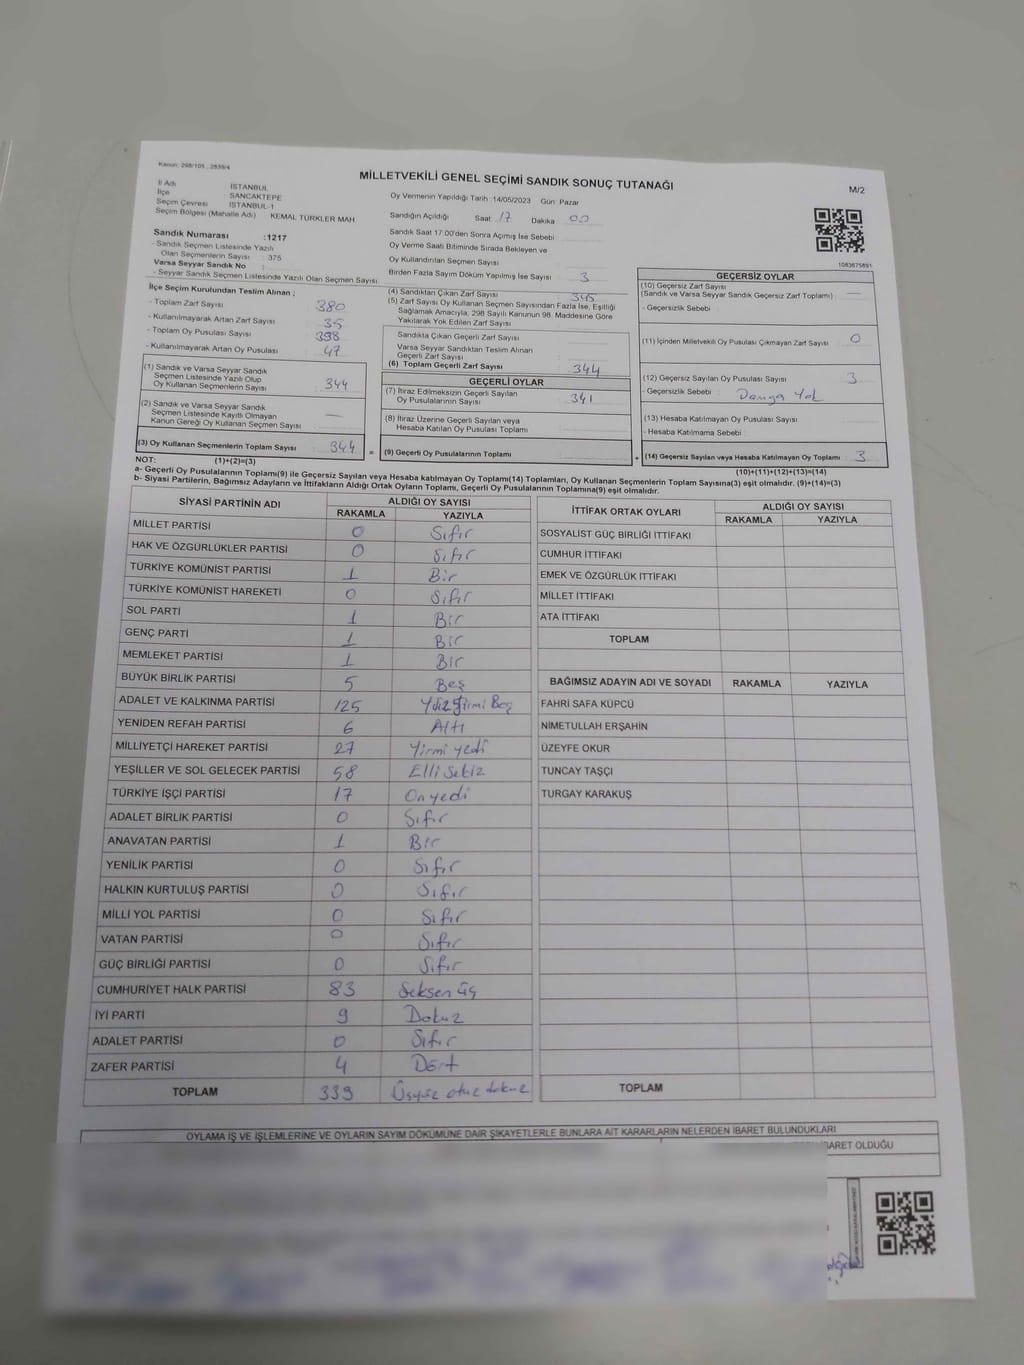 Kanun: 298/105 , 2839/4
MİLLETVEKİLİ GENEL SEÇİMİ SANDIK SONUÇ TUTANAĞI
M/2
İl Adı : İSTANBUL
İlçe : SANCAKTEPE
Seçim Çevresi : İSTANBUL-1
Seçim Bölgesi (Mahalle Adı) : KEMAL TÜRKLER MAH
Oy Vermenin Yapıldığı Tarih :14/05/2023 Gün: Pazar
Sandığın Açıldığı Saat :17 Dakika :00
Sandık Numarası :1217
- Sandık Seçmen Listesinde Yazılı
Olan Seçmenlerin Sayısı : 375
Varsa Seyyar Sandık No :
- Seyyar Sandık Seçmen Listesinde Yazılı Olan Seçmen Sayısı:
Sandık Saat 17:00'den Sonra Açımış İse Sebebi :
Oy Verme Saati Bitiminde Sırada Bekleyen ve
Oy Kullandırılan Seçmen Sayısı :
Birden Fazla Sayım Döküm Yapılmış İse Sayısı : 3
1083675891
İlçe Seçim Kurulundan Teslim Alınan ;
- Toplam Zarf Sayısı : 380
- Kullanılmayarak Artan Zarf Sayısı : 35
- Toplam Oy Pusulası Sayısı : 398
- Kullanılmayarak Artan Oy Pusulası : 47
(1) Sandık ve Varsa Seyyar Sandık
Seçmen Listesinde Yazılı Olup
Oy Kullanan Seçmenlerin Sayısı : 344
(2) Sandık ve Varsa Seyyar Sandık
Seçmen Listesinde Kayıtlı Olmayan
Kanun Gereği Oy Kullanan Seçmen Sayısı : —
(3) Oy Kullanan Seçmenlerin Toplam Sayısı : 344
(1)+(2)=(3)
(4) Sandıktan Çıkan Zarf Sayısı : 345
(5) Zarf Sayısı Oy Kullanan Seçmen Sayısından Fazla İse, Eşitliği
Sağlamak Amacıyla, 298 Sayılı Kanunun 98. Maddesine Göre
Yakılarak Yok Edilen Zarf Sayısı :
Sandıkta Çıkan Geçerli Zarf Sayısı :
Varsa Seyyar Sandıktan Teslim Alınan
Geçerli Zarf Sayısı :
(6) Toplam Geçerli Zarf Sayısı : 344
GEÇERLİ OYLAR
(7) İtiraz Edilmeksizin Geçerli Sayılan
Oy Pusulalarının Sayısı : 341
(8) İtiraz Üzerine Geçerli Sayılan veya
Hesaba Katılan Oy Pusulası Toplamı :
= (9) Geçerli Oy Pusulalarının Toplamı :
GEÇERSİZ OYLAR
(10) Geçersiz Zarf Sayısı
(Sandık ve Varsa Seyyar Sandık Geçersiz Zarf Toplamı) : —
- Geçersizlik Sebebi :
(11) İçinden Milletvekili Oy Pusulası Çıkmayan Zarf Sayısı : 0
(12) Geçersiz Sayılan Oy Pusulası Sayısı : 3
- Geçersizlik Sebebi : Damga Yok
(13) Hesaba Katılmayan Oy Pusulası Sayısı :
- Hesaba Katılmama Sebebi :
+ (14) Geçersiz Sayılan veya Hesaba Katılmayan Oy Toplamı : 3
(10)+(11)+(12)+(13)=(14)
NOT:
a- Geçerli Oy Pusulalarının Toplamı(9) ile Geçersiz Sayılan veya Hesaba katılmayan Oy Toplamı(14) Toplamları, Oy Kullanan Seçmenlerin Toplam Sayısına(3) eşit olmalıdır. (9)+(14)=(3)
b- Siyasi Partilerin, Bağımsız Adayların ve İttifakların Aldığı Oy Ortak Oyların Toplamı, Geçerli Oy Pusulalarının Toplamına(9) eşit olmalıdır.
SİYASİ PARTİNİN ADI ALDIĞI OY SAYISI
RAKAMLA YAZIYLA
MİLLET PARTİSİ 0 Sıfır
HAK VE ÖZGÜRLÜKLER PARTİSİ 0 Sıfır
TÜRKİYE KOMÜNİST PARTİSİ 1 Bir
TÜRKİYE KOMÜNİST HAREKETİ 0 Sıfır
SOL PARTİ 1 Bir
GENÇ PARTİ 1 Bir
MEMLEKET PARTİSİ 1 Bir
BÜYÜK BİRLİK PARTİSİ 5 Beş
ADALET VE KALKINMA PARTİSİ 125 Yüz yirmi Beş
YENİDEN REFAH PARTİSİ 6 Altı
MİLLİYETÇİ HAREKET PARTİSİ 27 Yirmi yedi
YEŞİLLER VE SOL GELECEK PARTİSİ 58 Elli Sekiz
TÜRKİYE İŞÇİ PARTİSİ 17 Onyedi
ADALET BİRLİK PARTİSİ 0 Sıfır
ANAVATAN PARTİSİ 1 Bir
YENİLİK PARTİSİ 0 Sıfır
HALKIN KURTULUŞ PARTİSİ 0 Sıfır
MİLLİ YOL PARTİSİ 0 Sıfır
VATAN PARTİSİ 0 Sıfır
GÜÇ BİRLİĞİ PARTİSİ 0 Sıfır
CUMHURİYET HALK PARTİSİ 83 Seksen üç
İYİ PARTİ 9 Dokuz
ADALET PARTİSİ 0 Sıfır
ZAFER PARTİSİ 4 Dört
TOPLAM 339 Üçyüz otuz dokuz
İTTİFAK ORTAK OYLARI ALDIĞI OY SAYISI
RAKAMLA YAZIYLA
SOSYALİST GÜÇ BİRLİĞİ İTTİFAKI
CUMHUR İTTİFAKI
EMEK VE ÖZGÜRLÜK İTTİFAKI
MİLLET İTTİFAKI
ATA İTTİFAKI
TOPLAM
BAĞIMSIZ ADAYIN ADI VE SOYADI RAKAMLA YAZIYLA
FAHRİ SAFA KÜPCÜ
NİMETULLAH ERŞAHİN
ÜZEYFE OKUR
TUNCAY TAŞÇI
TURGAY KARAKUŞ
TOPLAM
OYLAMA İŞ VE İŞLEMLERİNE VE OYLARIN SAYIM DÖKÜMÜNE DAİR ŞİKAYETLERLE BUNLARA AİT KARARLARIN NELERDEN İBARET BULUNDUKLARI
İBARET OLDUĞU